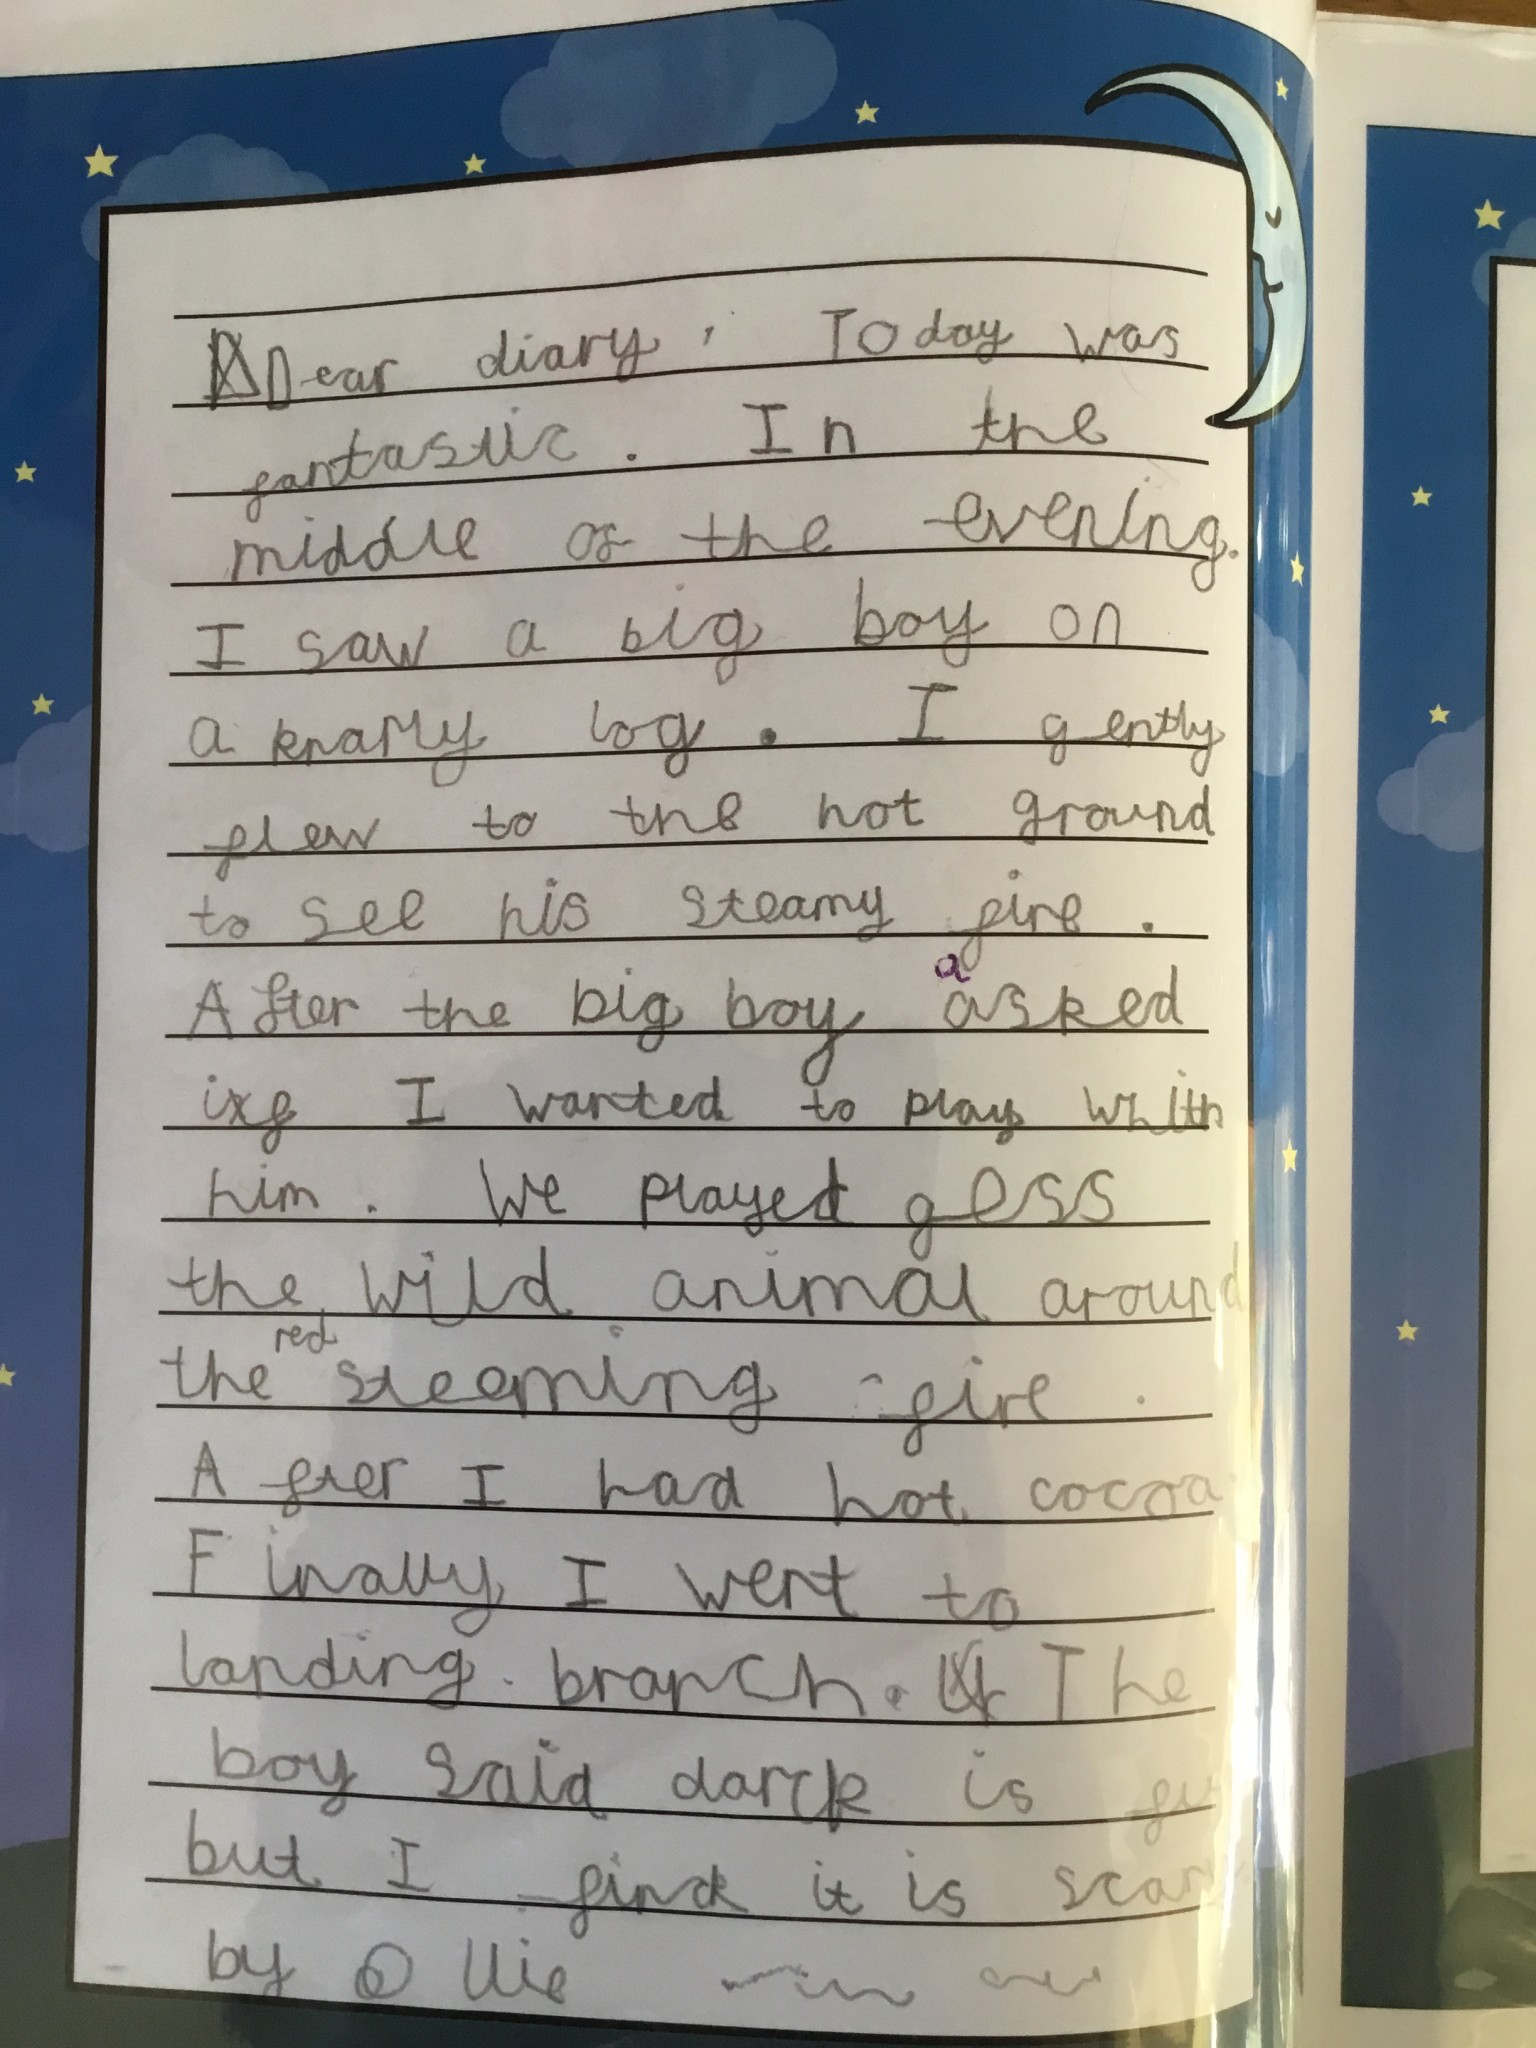 Dear diary, Today was
fantastic. In the
middle of the evening.
I saw a big boy on
a knarly log. I gently
flew to the hot ground
to see his steamy fire.
After the big boy asked
ixf I wanted to play whith
him. We played gess
the wild animal around
the red steeming fire.
After I had hot cocoa
Finally I went to
landing. branch. The
boy said darck is
but I find it is
by Ollie